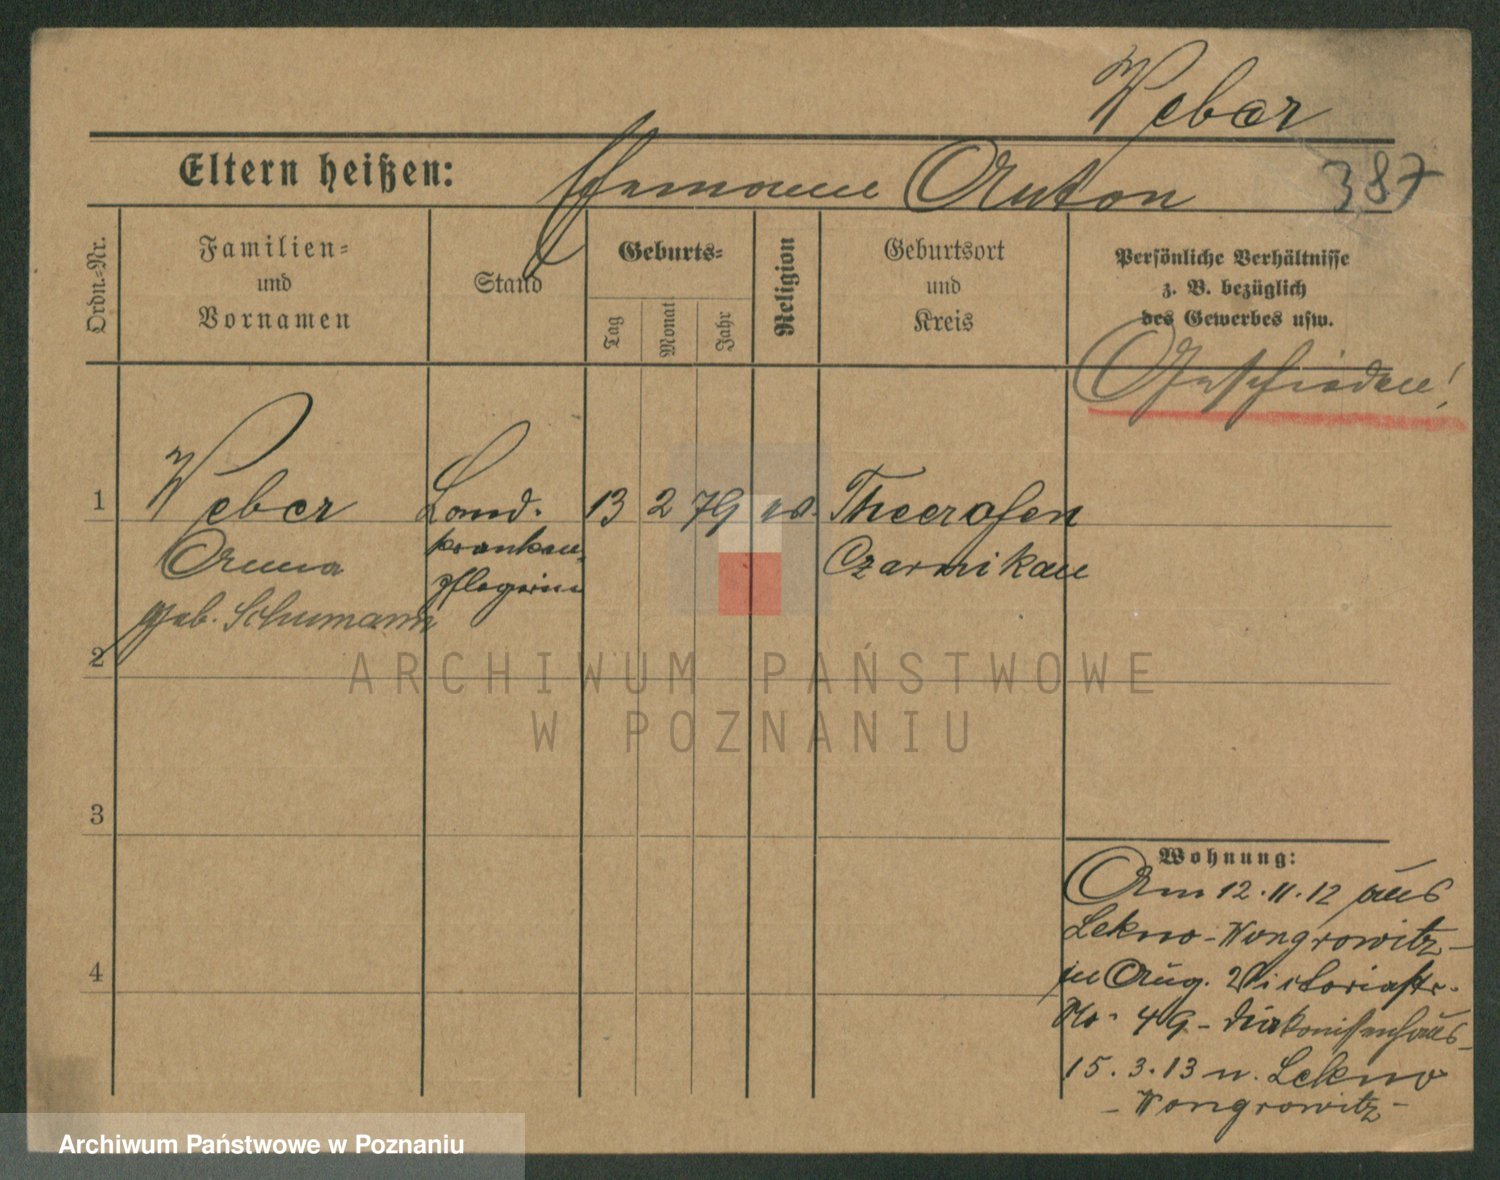 Weber
Eltern heißen:
Anton
387
Ordn.-Nr.
Familien-
und
Vornamen
Stand
Geburts-
Tag
Monat
Jahr
Religion
Geburtsort
und
Kreis
Persönliche Verhältnisse
z. B. bezüglich
des Gewerbes usw.
Geschieden!
1
Weber
Land-
13
2
79
ev.
Theerofen
kranken-
Czarnikau
Anna
pflegerin
geb. Schumann
2
ARCHIWUM PAŃSTWOWE
W POZNANIU
3
4
Wohnung:
Am 12.11.12 aus
Lekno-Wongrowitz-
in Aug. Victoriastr.
No. 49 - Diakonissenhaus-
15.3.13 n. Lekno
- Wongrowitz -
Archiwum Państwowe w Poznaniu